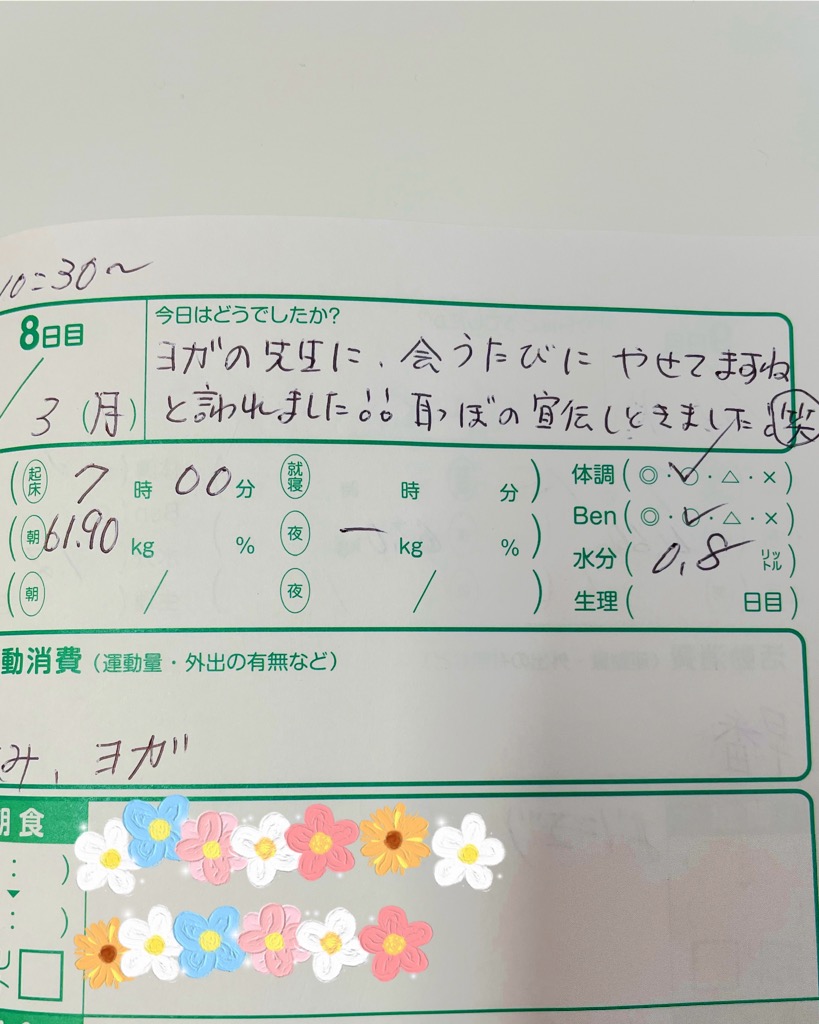 10:30~
8日目
今日はどうでしたか?
ヨガの先生に、会うたびに やせてますね
と言われました!! 耳つぼの宣伝しときました!笑
/3(月)
(起床 7時00分 就寝 時 分)
体調(◎・○・△・×)
(朝61.90kg % 夜 ー kg %)
Ben(◎・○・△・×)
水分(0.8リットル)
(朝 / 夜 / )
生理( 日目)
動消費(運動量・外出の有無など)
み、ヨガ
朝食
: )
: )